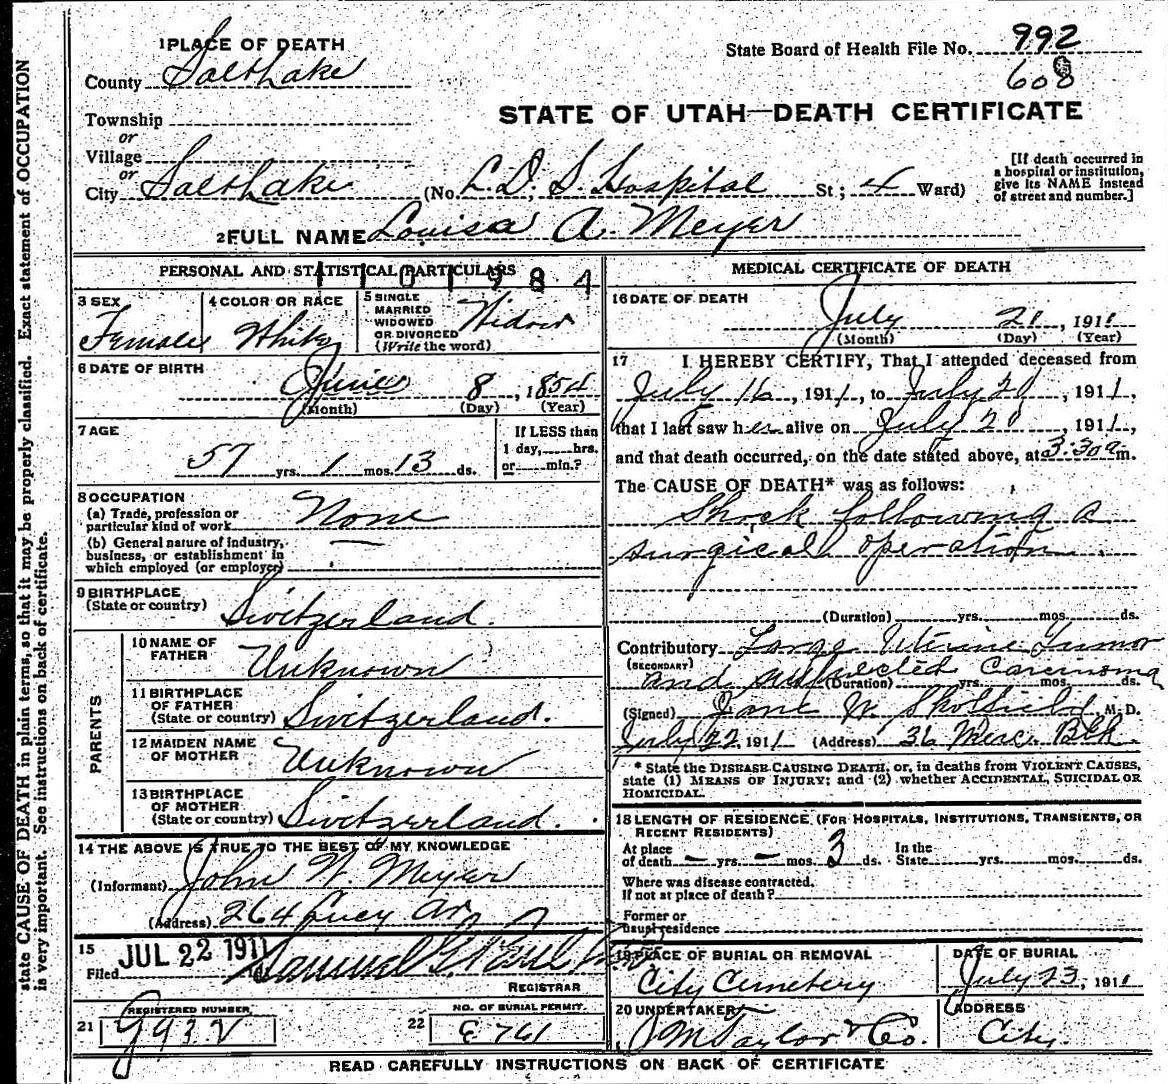 state CAUSE OF DEATH in plain terms, so that it may be properly classified. Exact statement of OCCUPATION
is very important. See instructions on back of certificate.
1 PLACE OF DEATH
State Board of Health File No. 992
608
County Salt Lake
STATE OF UTAH—DEATH CERTIFICATE
Township
or
Village
or
City Salt Lake (No. L. D. S. Hospital St; 4 Ward)
[If death occurred in
a hospital or institution,
give its NAME instead
of street and number.]
2 FULL NAME Louisa A. Meyer
PERSONAL AND STATISTICAL PARTICULARS
1101984
3 SEX
Female
4 COLOR OR RACE
White
5 SINGLE
MARRIED
WIDOWED
OR DIVORCED
(Write the word)
Widow
6 DATE OF BIRTH
June 8, 1854
(Month) (Day) (Year)
7 AGE
57 yrs. 1 mos. 13 ds.
If LESS than
1 day, hrs.
or min.?
8 OCCUPATION
(a) Trade, profession or
particular kind of work None
(b) General nature of industry,
business, or establishment in
which employed (or employer) —
9 BIRTHPLACE
(State or country) Switzerland.
PARENTS
10 NAME OF
FATHER Unknown
11 BIRTHPLACE
OF FATHER
(State or country) Switzerland.
12 MAIDEN NAME
OF MOTHER Unknown
13 BIRTHPLACE
OF MOTHER
(State or country) Switzerland.
14 THE ABOVE IS TRUE TO THE BEST OF MY KNOWLEDGE
(Informant) John W. Meyer
(Address) 264 Lucy Av
15
Filed JUL 22 1911
REGISTRAR
21 REGISTERED NUMBER
22 NO. OF BURIAL PERMIT
E 761
MEDICAL CERTIFICATE OF DEATH
16 DATE OF DEATH
July 21, 1911
(Month) (Day) (Year)
17 I HEREBY CERTIFY, That I attended deceased from
July 16, 1911, to July 21, 1911,
that I last saw her alive on July 21, 1911,
and that death occurred, on the date stated above, at 3:30 a m.
The CAUSE OF DEATH* was as follows:
Shock following a
surgical operation
(Duration) yrs. mos. ds.
Contributory Large Uterine Tumor
(SECONDARY)
and suspected Carcinoma
(Duration) yrs. mos. ds.
(Signed) Jane W. Skolfield, M. D.
July 22 1911 (Address) 36 Merc. Blk.
* State the DISEASE CAUSING DEATH, or, in deaths from VIOLENT CAUSES,
state (1) MEANS OF INJURY; and (2) whether ACCIDENTAL, SUICIDAL OR
HOMICIDAL.
18 LENGTH OF RESIDENCE (FOR HOSPITALS, INSTITUTIONS, TRANSIENTS, OR
RECENT RESIDENTS)
At place
of death — yrs. — mos. 3 ds.
In the
State yrs. mos. ds.
Where was disease contracted.
If not at place of death?
Former or
usual residence
19 PLACE OF BURIAL OR REMOVAL
City Cemetery
DATE OF BURIAL
July 23, 1911
20 UNDERTAKER
J M Taylor & Co.
ADDRESS
City.
READ CAREFULLY INSTRUCTIONS ON BACK OF CERTIFICATE